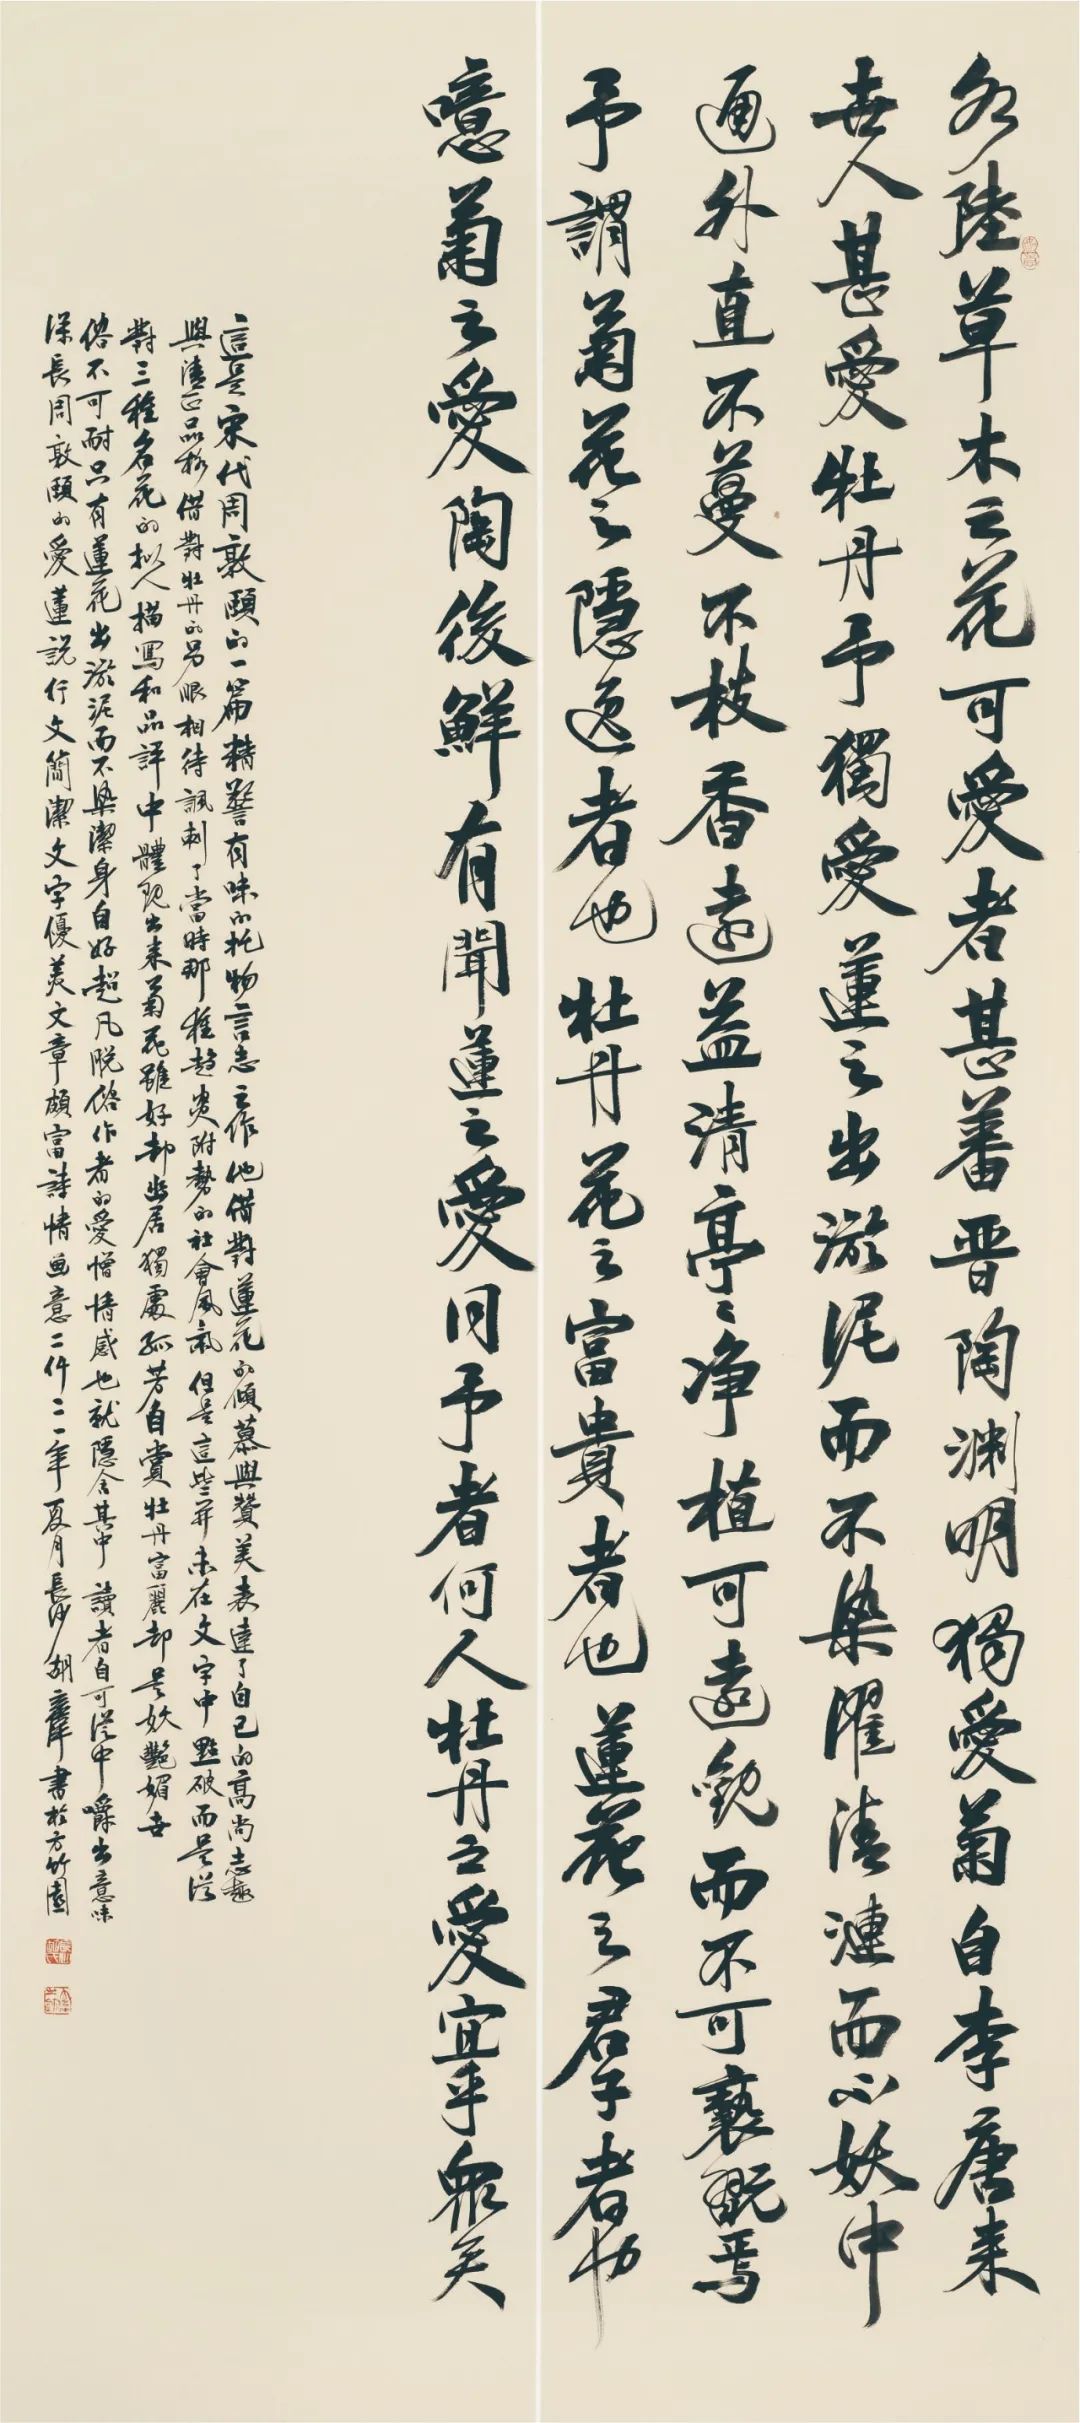 水陸草木之花可愛者甚蕃晋陶渊明獨愛菊自李唐来
世人甚愛牡丹予獨愛蓮之出淤泥而不染濯清漣而不妖中
通外直不蔓不枝香遠益清亭〻净植可遠觀而不可褻翫焉
予謂菊花之隱逸者也牡丹花之富貴者也蓮花之君子者也
噫菊之愛陶後鮮有聞蓮之愛同予者何人牡丹之愛宜乎衆矣
這是宋代周敦頤的一篇精警有味的托物言志之作他借對蓮花的傾慕與贊美表達了自己的高尚志趣
與清正品格借對牡丹的另眼相待諷刺了當時那種趨炎附勢的社會風氣但是這些并未在文字中點破而是從
對三種名花的拟人描寫和品評中體現出来菊花雖好却幽居獨處孤芳自賞牡丹富麗却是妖艷媚世
俗不可耐只有蓮花出淤泥而不染潔身自好超凡脱俗作者的愛憎情感也就隱含其中讀者自可從中嚼出意味
深長周敦頤的愛蓮説行文簡潔文字優美文章頗富詩情画意二仟二一年夏月長沙胡書於方竹園